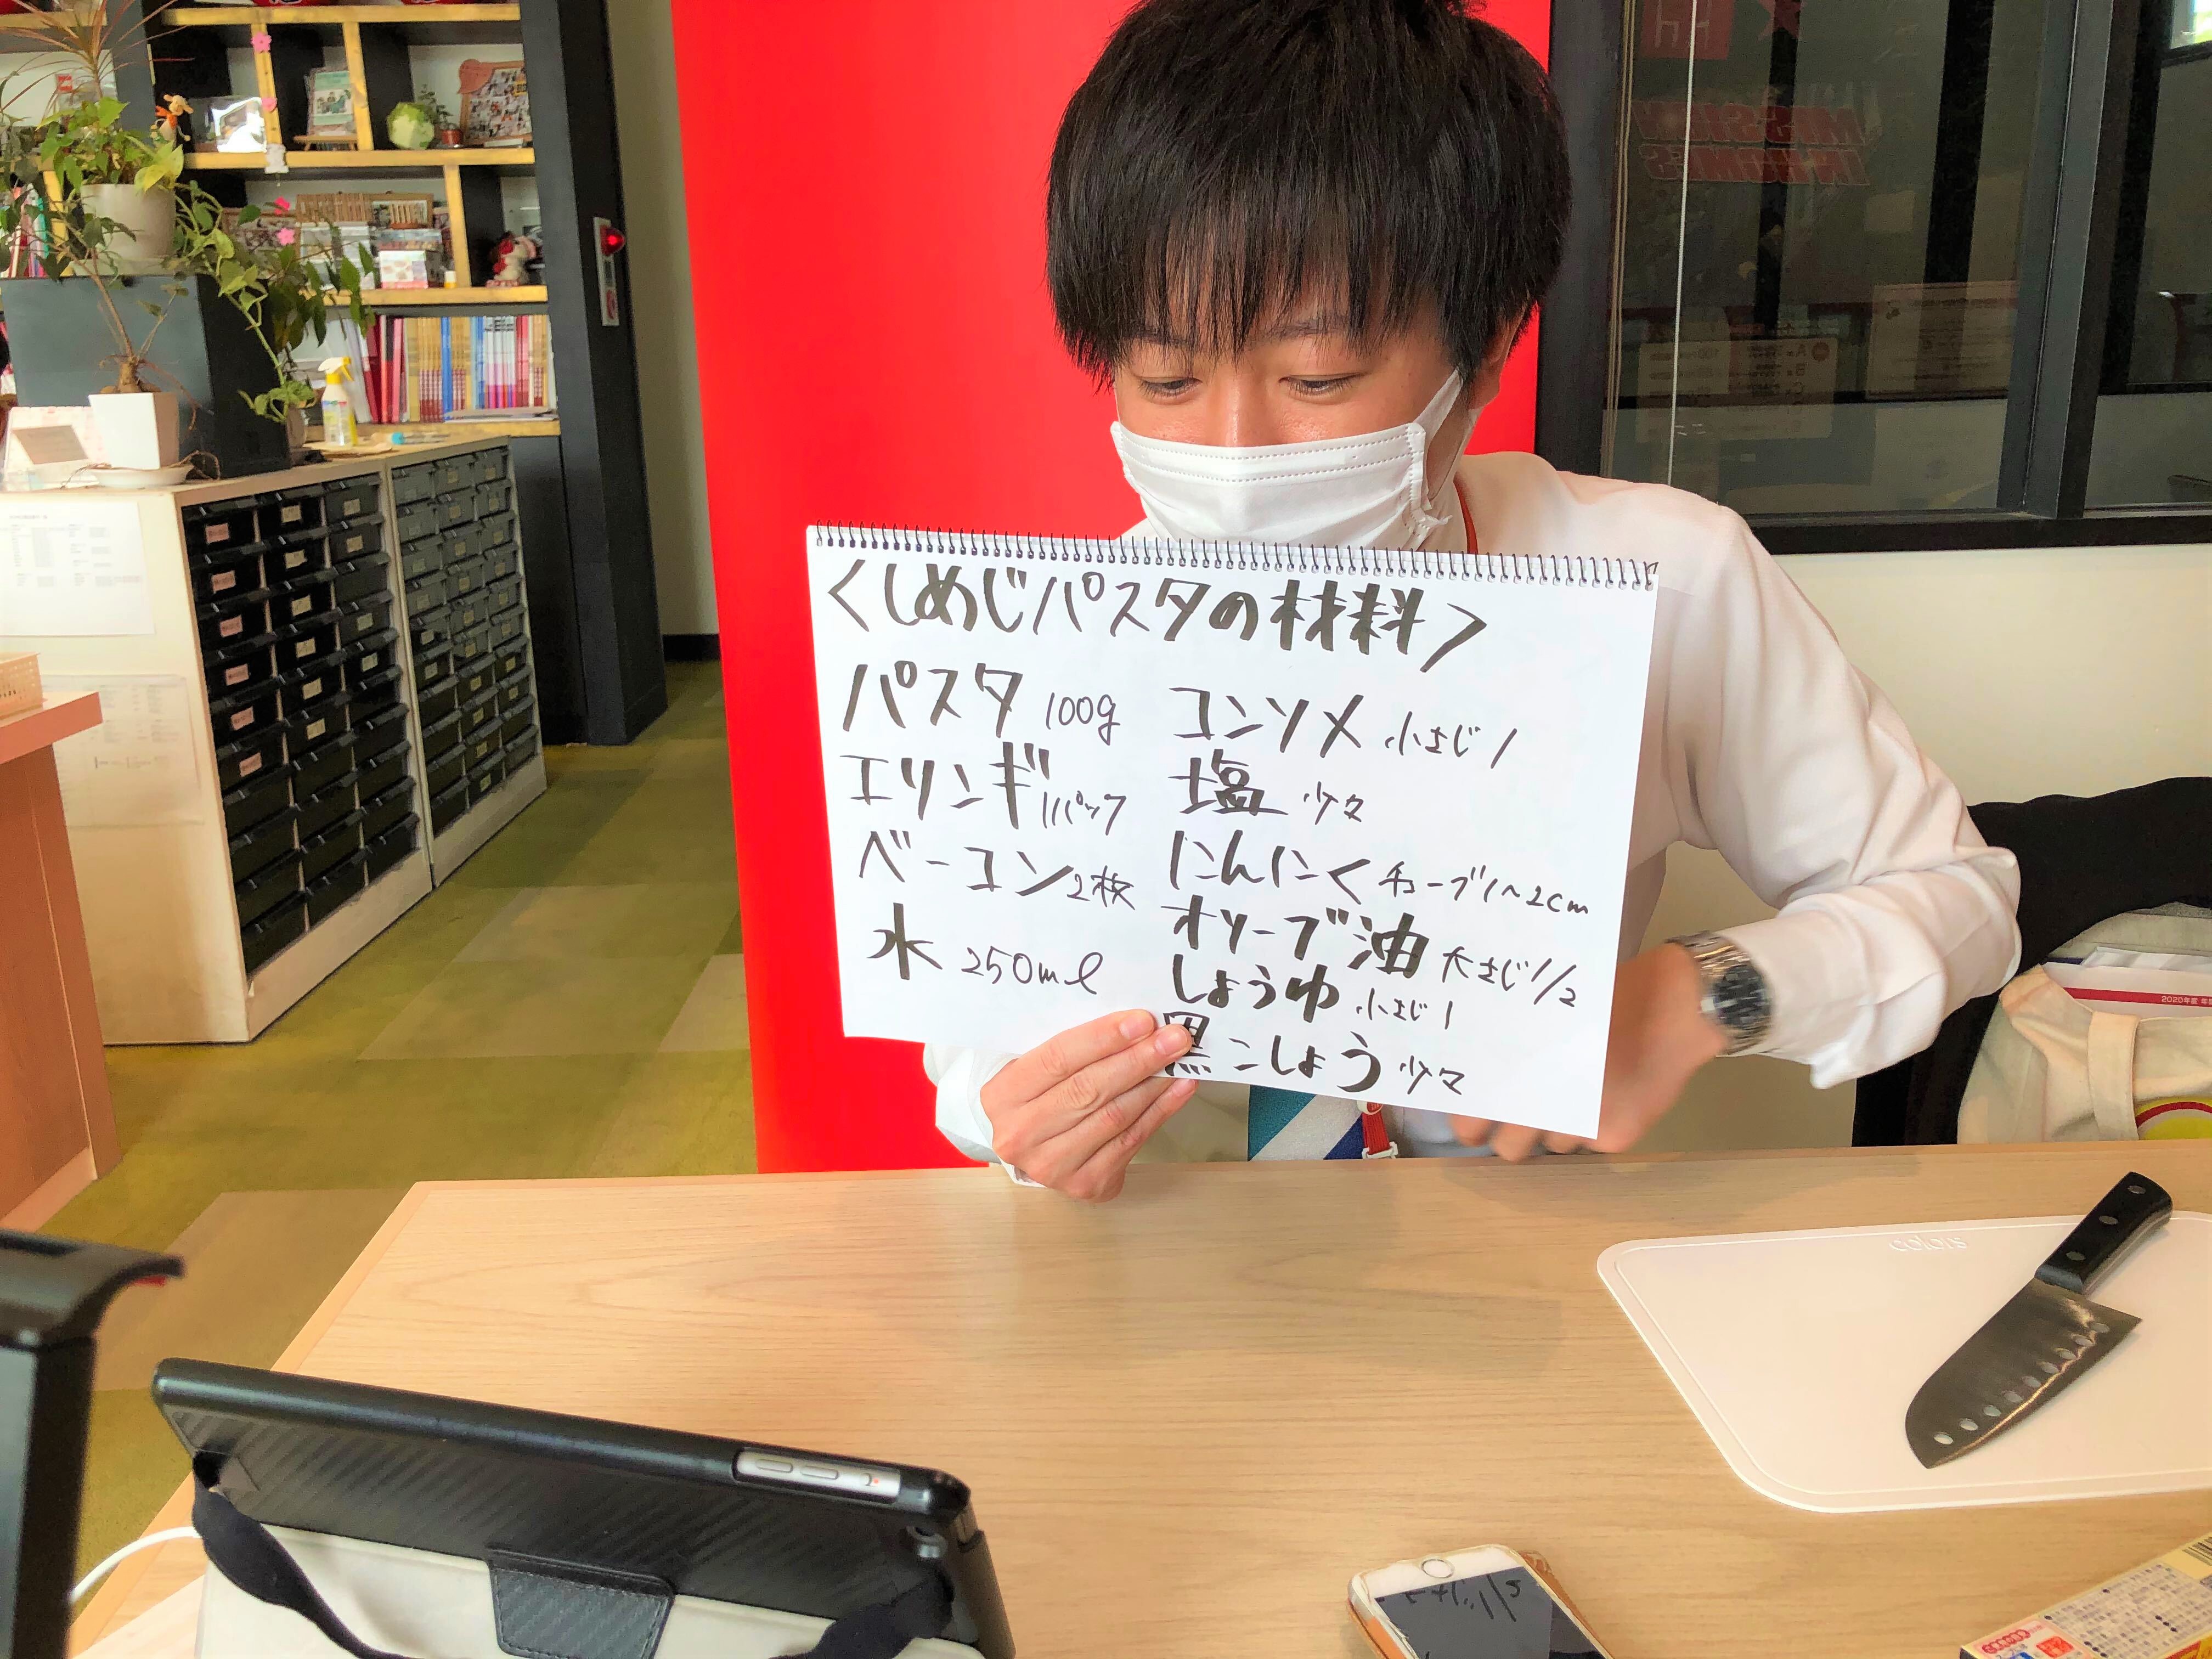 <しめじパスタの材料>
パスタ 100g
エリンギ 1パック
ベーコン 2枚
水 250ml
コンソメ 小さじ1
塩 少々
にんにく チューブ1~2cm
オリーブ油 大さじ1/2
しょうゆ 小さじ1
黒こしょう 少々
colors
2020年度